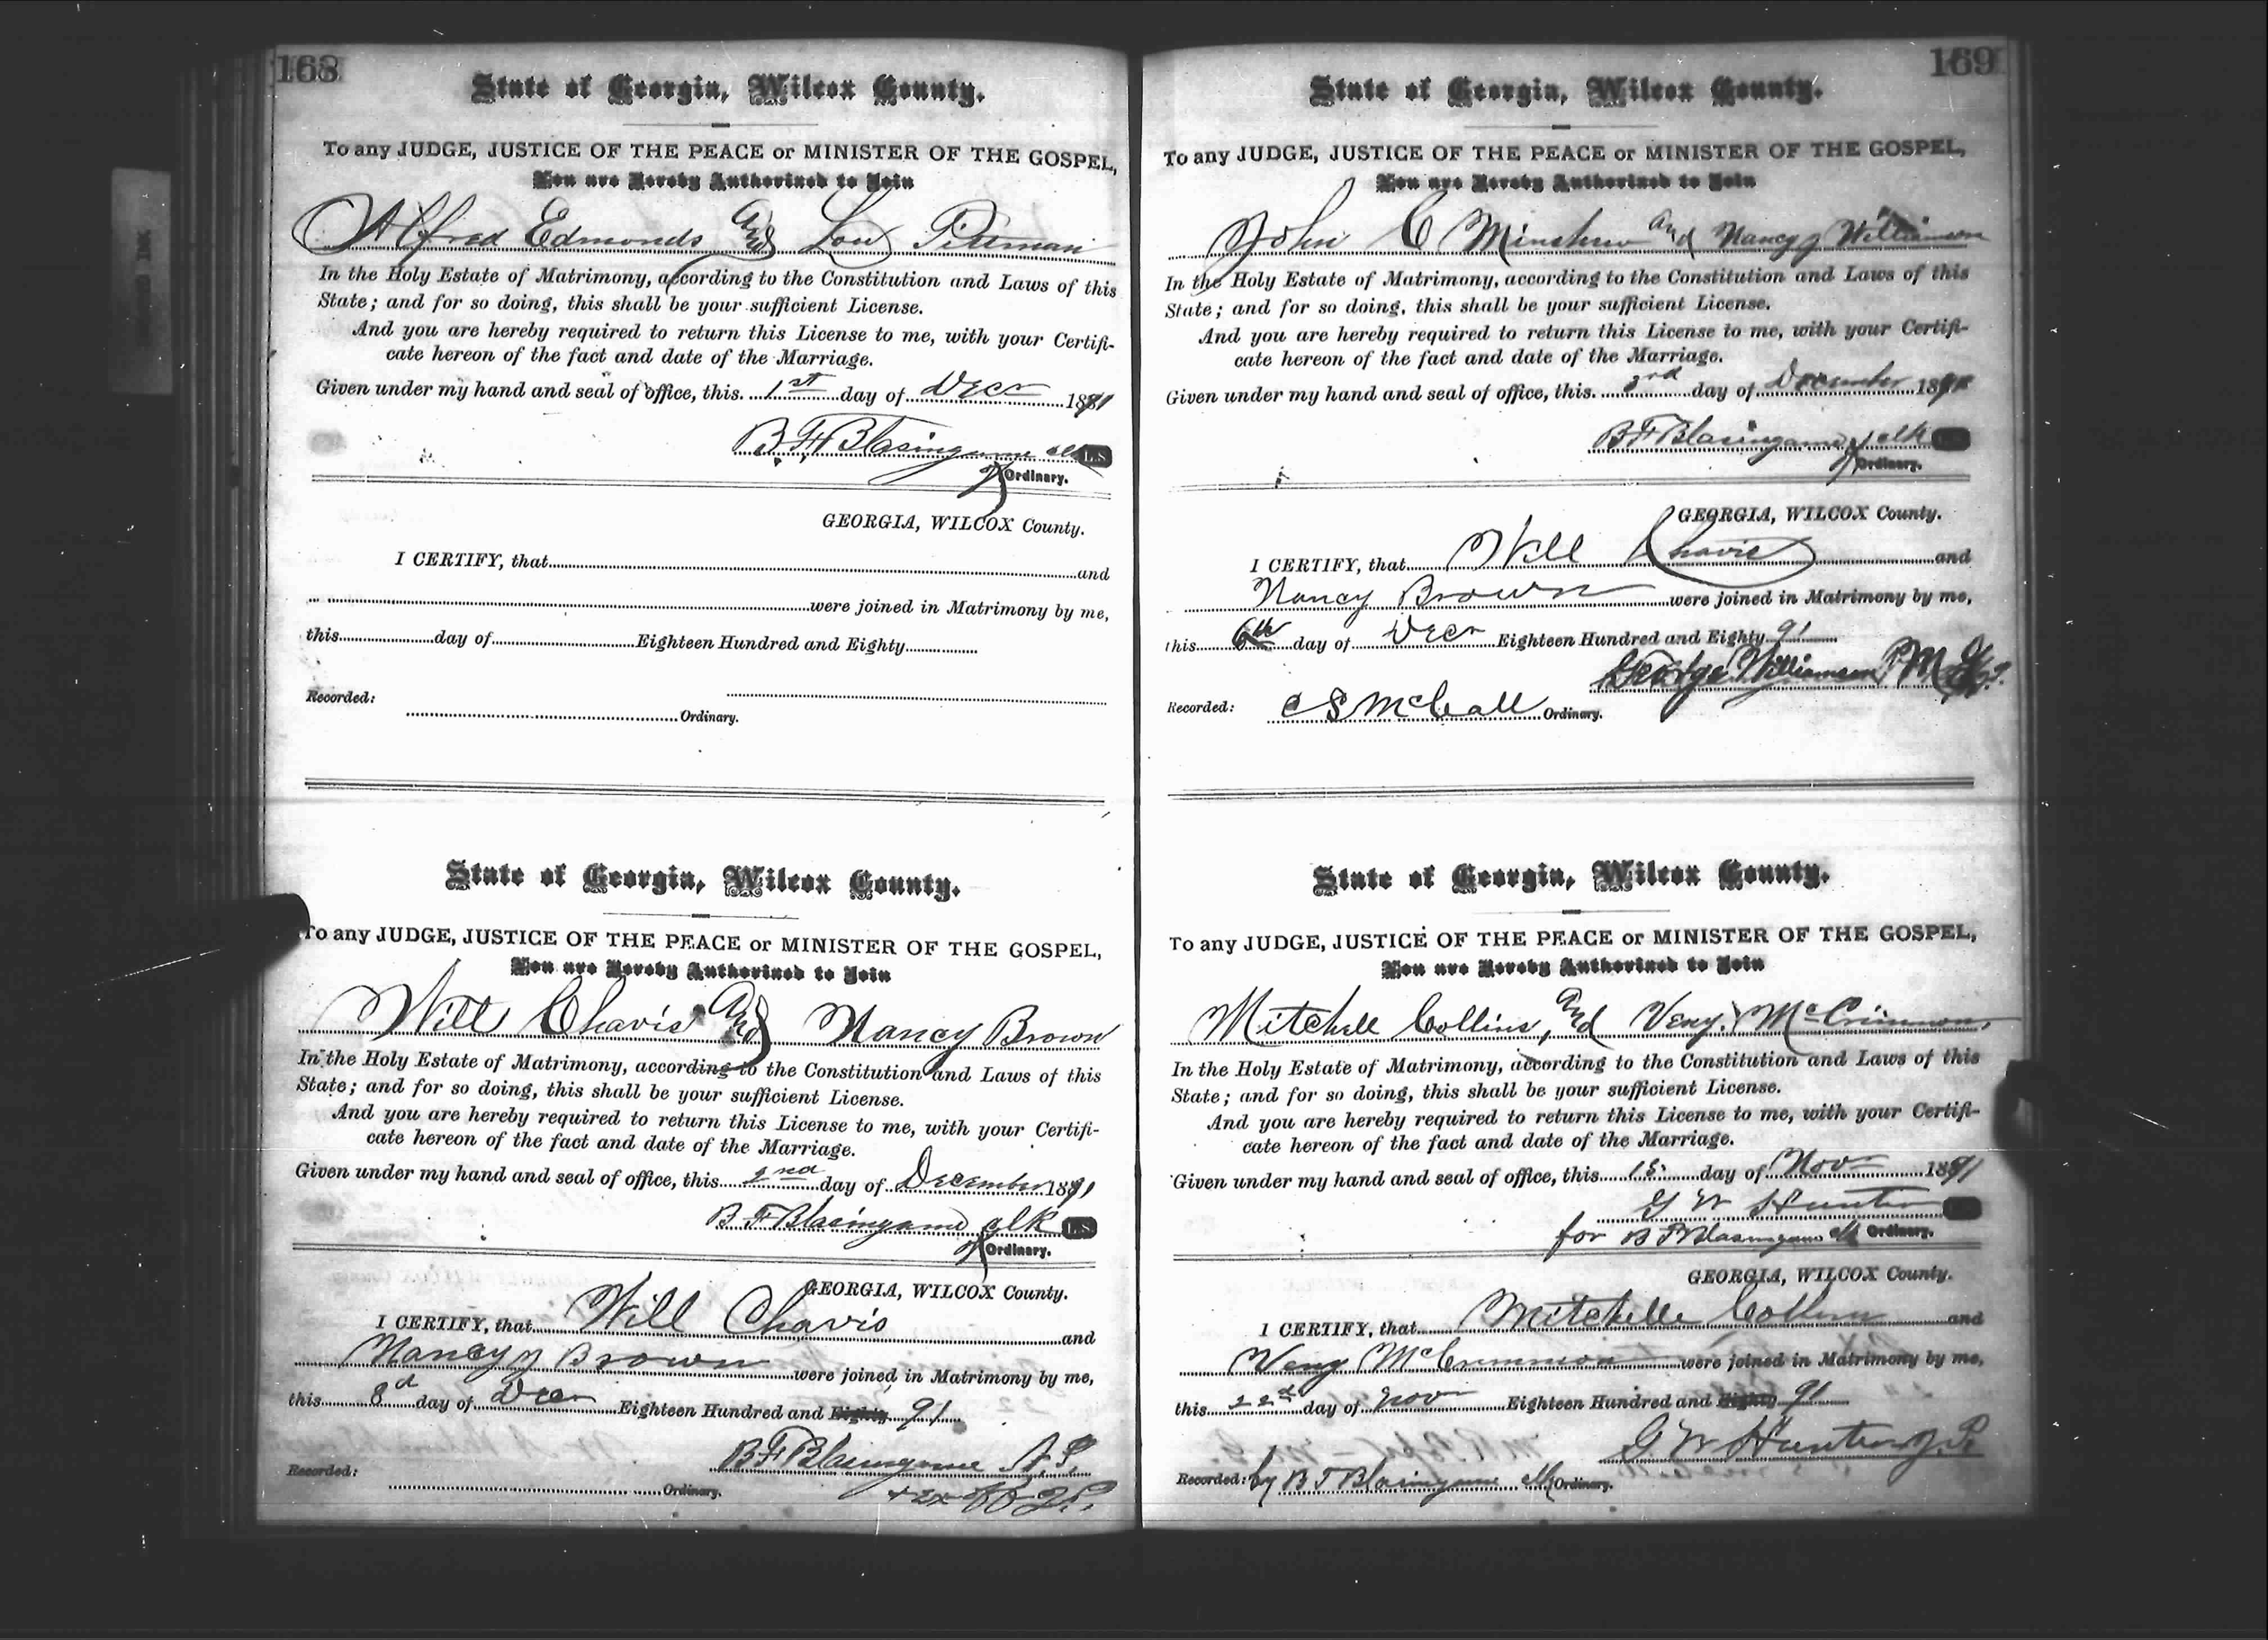 168
State of Georgia, Wilcox County.
To any JUDGE, JUSTICE OF THE PEACE or MINISTER OF THE GOSPEL,
You are Hereby Authorized to Join
Alfred Edmonds and Lou Pittman
In the Holy Estate of Matrimony, according to the Constitution and Laws of this
State; and for so doing, this shall be your sufficient License.
And you are hereby required to return this License to me, with your Certifi-
cate hereon of the fact and date of the Marriage.
Given under my hand and seal of office, this 1st day of Dec 1891
B F Blasingame clk L.S
Ordinary.
GEORGIA, WILCOX County.
I CERTIFY, that and
were joined in Matrimony by me,
this day of Eighteen Hundred and Eighty
Recorded:
Ordinary.
State of Georgia, Wilcox County.
To any JUDGE, JUSTICE OF THE PEACE or MINISTER OF THE GOSPEL,
You are Hereby Authorized to Join
Will Chavis and Nancy Brown
In the Holy Estate of Matrimony, according to the Constitution and Laws of this
State; and for so doing, this shall be your sufficient License.
And you are hereby required to return this License to me, with your Certifi-
cate hereon of the fact and date of the Marriage.
Given under my hand and seal of office, this 2nd day of December 1891
B F Blasingame clk L.S
Ordinary.
GEORGIA, WILCOX County.
I CERTIFY, that Will Chavis and
Nancy Brown were joined in Matrimony by me,
this 8d day of Dec Eighteen Hundred and Eighty 91
B F Blasingame
Recorded:
Ordinary.
169
State of Georgia, Wilcox County.
To any JUDGE, JUSTICE OF THE PEACE or MINISTER OF THE GOSPEL,
You are Hereby Authorized to Join
John C Minshew and Nancy J Williamson
In the Holy Estate of Matrimony, according to the Constitution and Laws of this
State; and for so doing, this shall be your sufficient License.
And you are hereby required to return this License to me, with your Certifi-
cate hereon of the fact and date of the Marriage.
Given under my hand and seal of office, this 3rd day of December 1891
B F Blasingame clk
Ordinary.
GEORGIA, WILCOX County.
I CERTIFY, that Will Chavis and
Nancy Brown were joined in Matrimony by me,
this 6th day of Dec Eighteen Hundred and Eighty 91
George Williamson
Recorded: C S McCall Ordinary.
State of Georgia, Wilcox County.
To any JUDGE, JUSTICE OF THE PEACE or MINISTER OF THE GOSPEL,
You are Hereby Authorized to Join
Mitchell Collins, and Veny McCrimmon,
In the Holy Estate of Matrimony, according to the Constitution and Laws of this
State; and for so doing, this shall be your sufficient License.
And you are hereby required to return this License to me, with your Certifi-
cate hereon of the fact and date of the Marriage.
Given under my hand and seal of office, this 15 day of Nov 1891
G W Hunter
for B F Blasingame clk Ordinary.
GEORGIA, WILCOX County.
I CERTIFY, that Mitchelle Collins and
Veny McCrimmon were joined in Matrimony by me,
this 22d day of Nov Eighteen Hundred and Eighty 91
G W Hunter J.P.
Recorded: by B F Blasingame clk Ordinary.